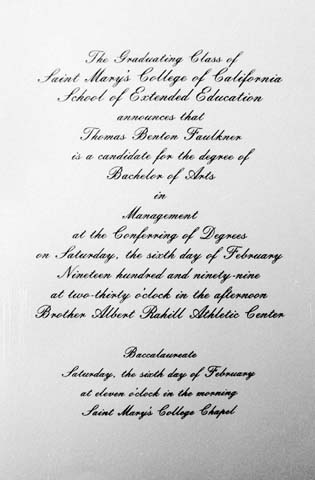 The Graduating Class of
Saint Mary's College of California
School of Extended Education
announces that
Thomas Benton Faulkner
is a candidate for the degree of
Bachelor of Arts
in
Management
at the Conferring of Degrees
on Saturday, the sixth day of February
Nineteen hundred and ninety-nine
at two-thirty o'clock in the afternoon
Brother Albert Rahill Athletic Center
Baccalaureate
Saturday, the sixth day of February
at eleven o'clock in the morning
Saint Mary's College Chapel